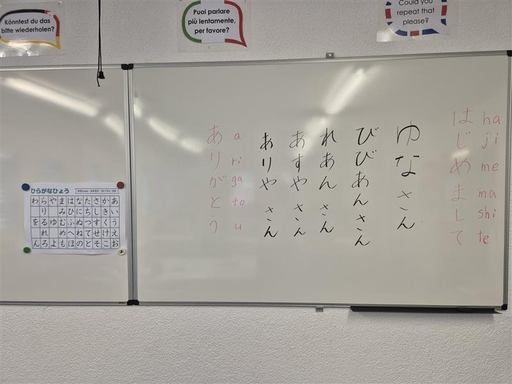 Könntest du das
bitte wiederholen?
Puoi parlare
più lentamente,
per favore?
Could you
repeat that
please?
はじめまして
ha
ji
me
ma
shi
te
ゆなさん
びびあんさん
れあんさん
あすやさん
ありやさん
ありがとう
a
ri
ga
to
u
ひらがなひょう
わらやまはなたさかあ
りみひにちしきい
をるゆむふぬつすくう
れめへねてせけえ
んろよもほのとそこお